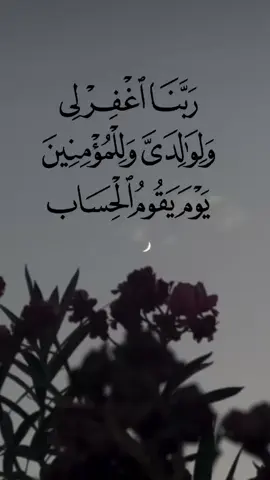 رَبَّنَا ٱغْفِرْ لِى
وَلِوَٰلِدَىَّ وَلِلْمُؤْمِنِينَ
يَوْمَ يَقُومُ ٱلْحِسَابُ